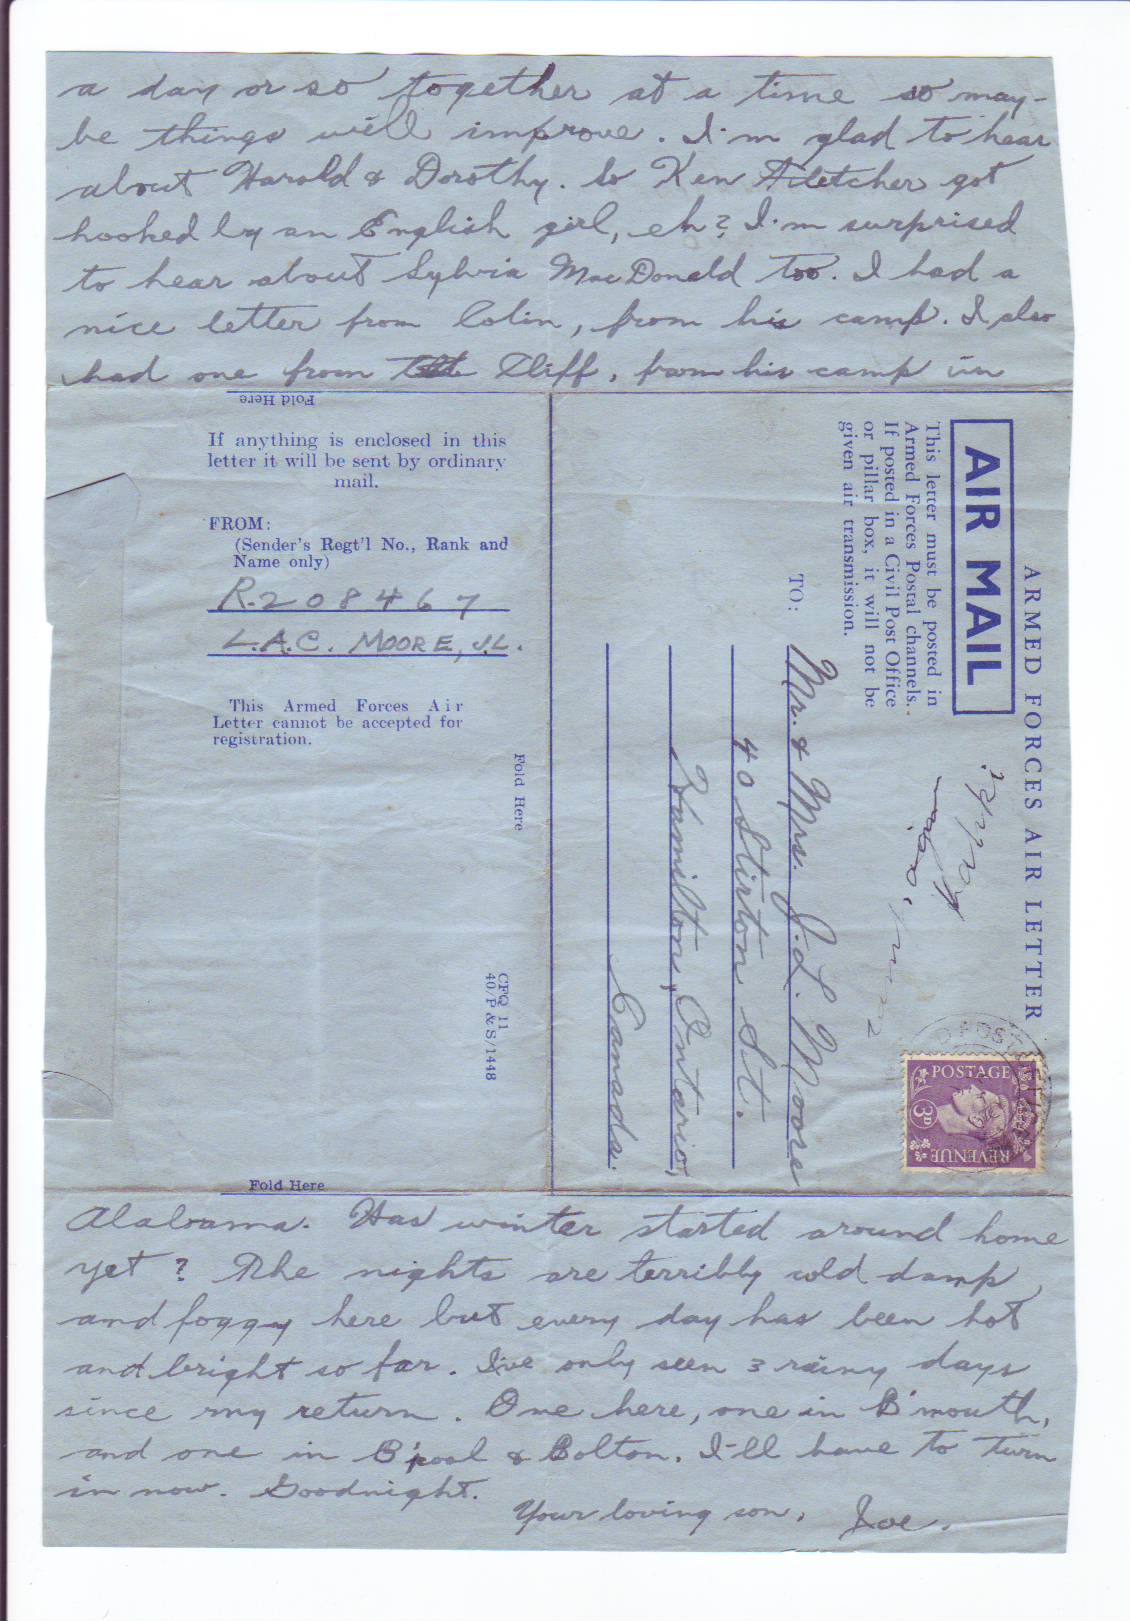 a day or so together at a time so may-
be things will improve. I'm glad to hear
about Harold & Dorothy. So Ken Fletcher got
hooked by an English girl, eh? I'm surprised
to hear about Sylvia MacDonald too. I had a
nice letter from Colin, from his camp. I also
had one from Cliff, from his camp in
Fold Here
If anything is enclosed in this
letter it will be sent by ordinary
mail.
FROM:
(Sender's Regt'l No., Rank and
Name only)
R.208467
L.A.C. MOORE, J.L.
This Armed Forces Air
Letter cannot be accepted for
registration.
Fold Here
CFQ 11
40/P & S/1448
ARMED FORCES AIR LETTER
AIR MAIL
This letter must be posted in
Armed Forces Postal channels.
If posted in a Civil Post Office
or pillar box, it will not be
given air transmission.
TO:
Mr. & Mrs. J.L. Moore
40 Stirton St.
Hamilton, Ontario,
Canada.
POSTAGE
3D
REVENUE
Fold Here
Alabama. Has winter started around home
yet? The nights are terribly cold damp,
and foggy here but every day has been hot
and bright so far. I've only seen 3 rainy days
since my return. One here, one in B'mouth,
and one in B'pool & Bolton. I'll have to turn
in now. Goodnight.
Your loving son,
Joe.